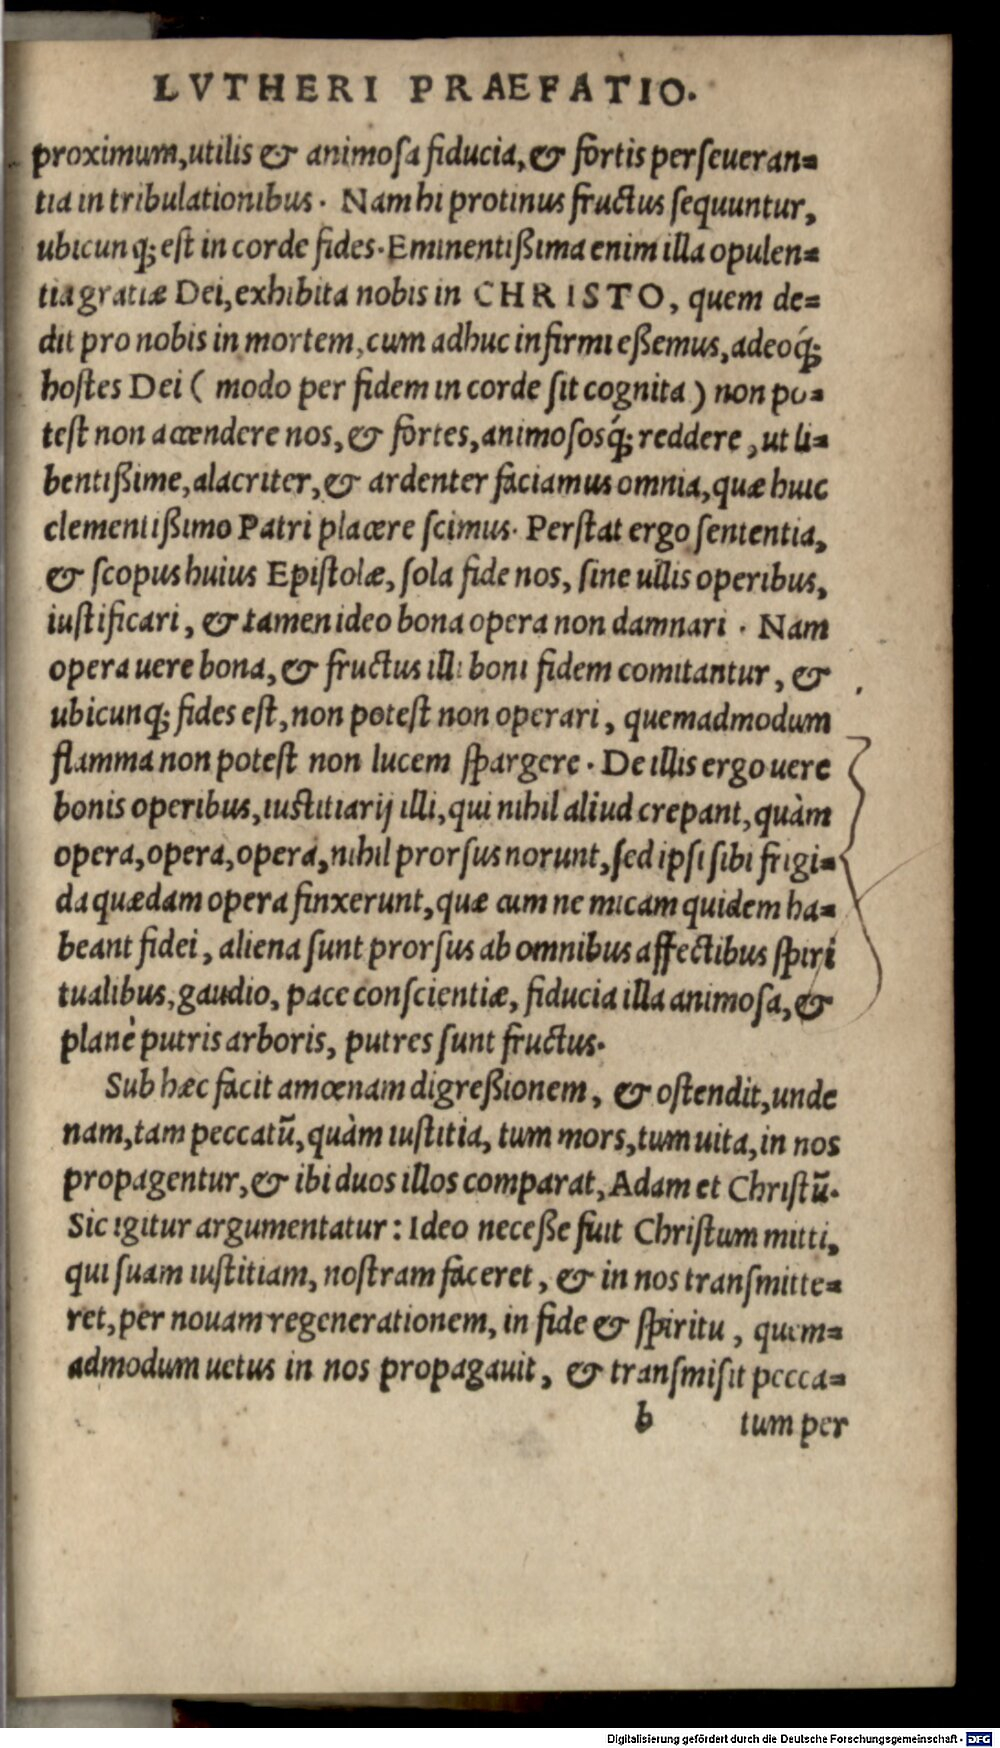 LVTHERI PRAEFATIO.
proximum, utilis & animosa fiducia, & fortis perseueran=
tia in tribulationibus. Nam hi protinus fructus sequuntur,
ubicunq; est in corde fides. Eminentißima enim illa opulen=
tia gratiæ Dei, exhibita nobis in CHRISTO, quem de=
dit pro nobis in mortem, cum adhuc infirmi eßemus, adeoq́;
hostes Dei ( modo per fidem in corde sit cognita ) non po=
test non accendere nos, & fortes, animososq́; reddere, ut li=
bentißime, alacriter, & ardenter faciamus omnia, quæ huic
clementißimo Patri placere scimus. Perstat ergo sententia,
& scopus huius Epistolæ, sola fide nos, sine ullis operibus,
iustificari, & tamen ideo bona opera non damnari. Nam
opera uere bona, & fructus illi boni fidem comitantur, &
ubicunq; fides est, non potest non operari, quemadmodum
flamma non potest non lucem spargere. De illis ergo uere
bonis operibus, iustitiarij illi, qui nihil aliud crepant, quàm
opera, opera, opera, nihil prorsus norunt, sed ipsi sibi frigi=
da quædam opera finxerunt, quæ cum ne micam quidem ha=
beant fidei, aliena sunt prorsus ab omnibus affectibus spiri
tualibus, gaudio, pace conscientiæ, fiducia illa animosa, &
planè putris arboris, putres sunt fructus.
Sub hæc facit amœnam digreßionem, & ostendit, unde
nam, tam peccatū, quàm iustitia, tum mors, tum uita, in nos
propagentur, & ibi duos illos comparat, Adam et Christū.
Sic igitur argumentatur: Ideo neceße fuit Christum mitti,
qui suam iustitiam, nostram faceret, & in nos transmitte=
ret, per nouam regenerationem, in fide & spiritu, quem=
admodum uetus in nos propagauit, & transmisit pecca=
b tum per
Digitalisierung gefördert durch die Deutsche Forschungsgemeinschaft - DFG